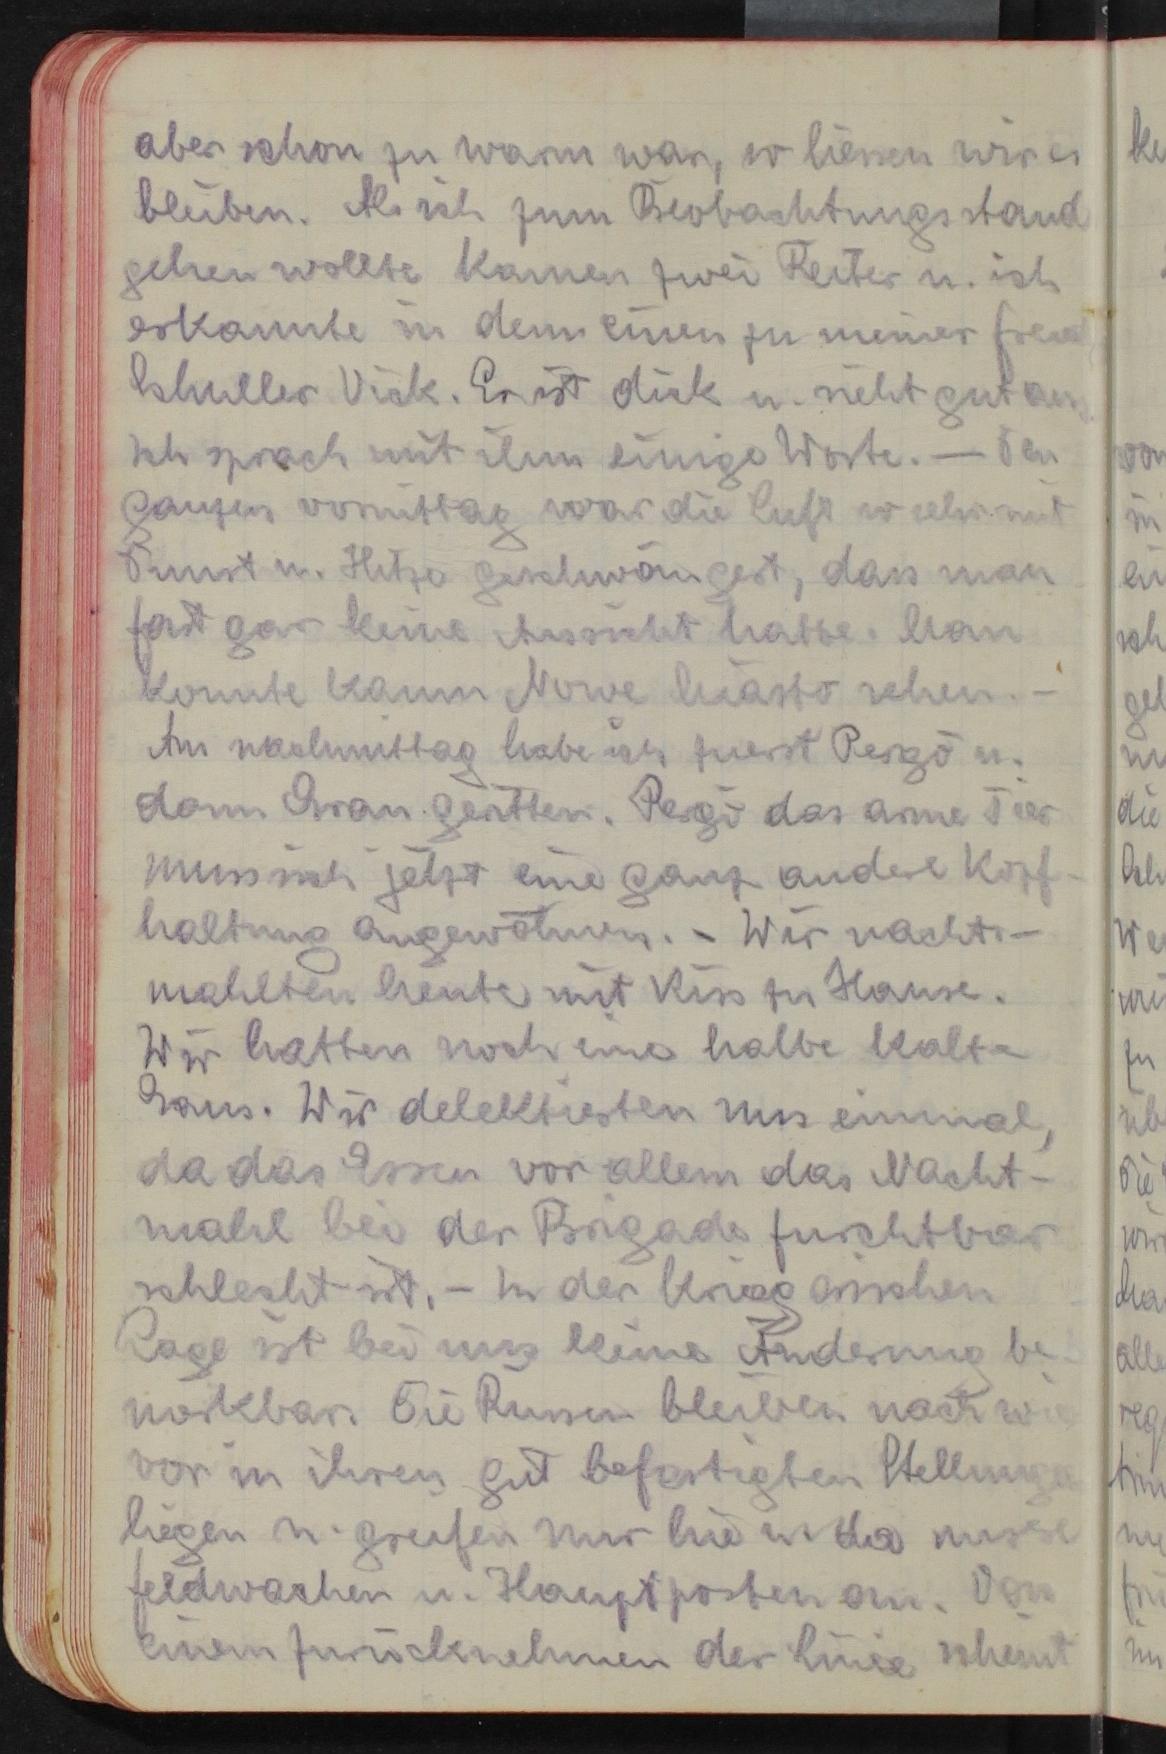 aber schon zu warm war, so liessen wir es
bleiben. Als ich zum Beobachtungsstand
gehen wollte kamen zwei Reiter u. ich
erkannte in dem einen zu meiner Freud
Schuller Vick. Er ist dick u. sieht gut aus.
Ich sprach mit ihm einige Worte. — Den
ganzen vormittag war die Luft so sehr mit
Dunst u. Hitze geschwängert, dass man
fast gar keine Aussicht hatte. Man
konnte kaum Nowe Miasto sehen. –
Am nachmittag habe ich zuerst Pergö u.
dann Gran geritten. Pergö das arme Tier
muss sich jetzt eine ganz andere Kopf-
haltung angewöhnen. – Wir nacht-
mahlten heute mit Kiss zu Hause.
Wir hatten noch eine halbe kalte
Gans. Wir delektierten uns einmal,
da das Essen vor allem das Nacht-
mahl bei der Brigade furchtbar
schlecht ist. – In der kriegerischen
Lage ist bei uns keine Änderung be-
merkbar. Die Russen bleiben nach wie
vor in ihren gut befestigten Stellungen
liegen u. greifen nur hie u. da unsere
Feldwachen u. Hauptposten an. Von
einem zurücknehmen der Linie scheint